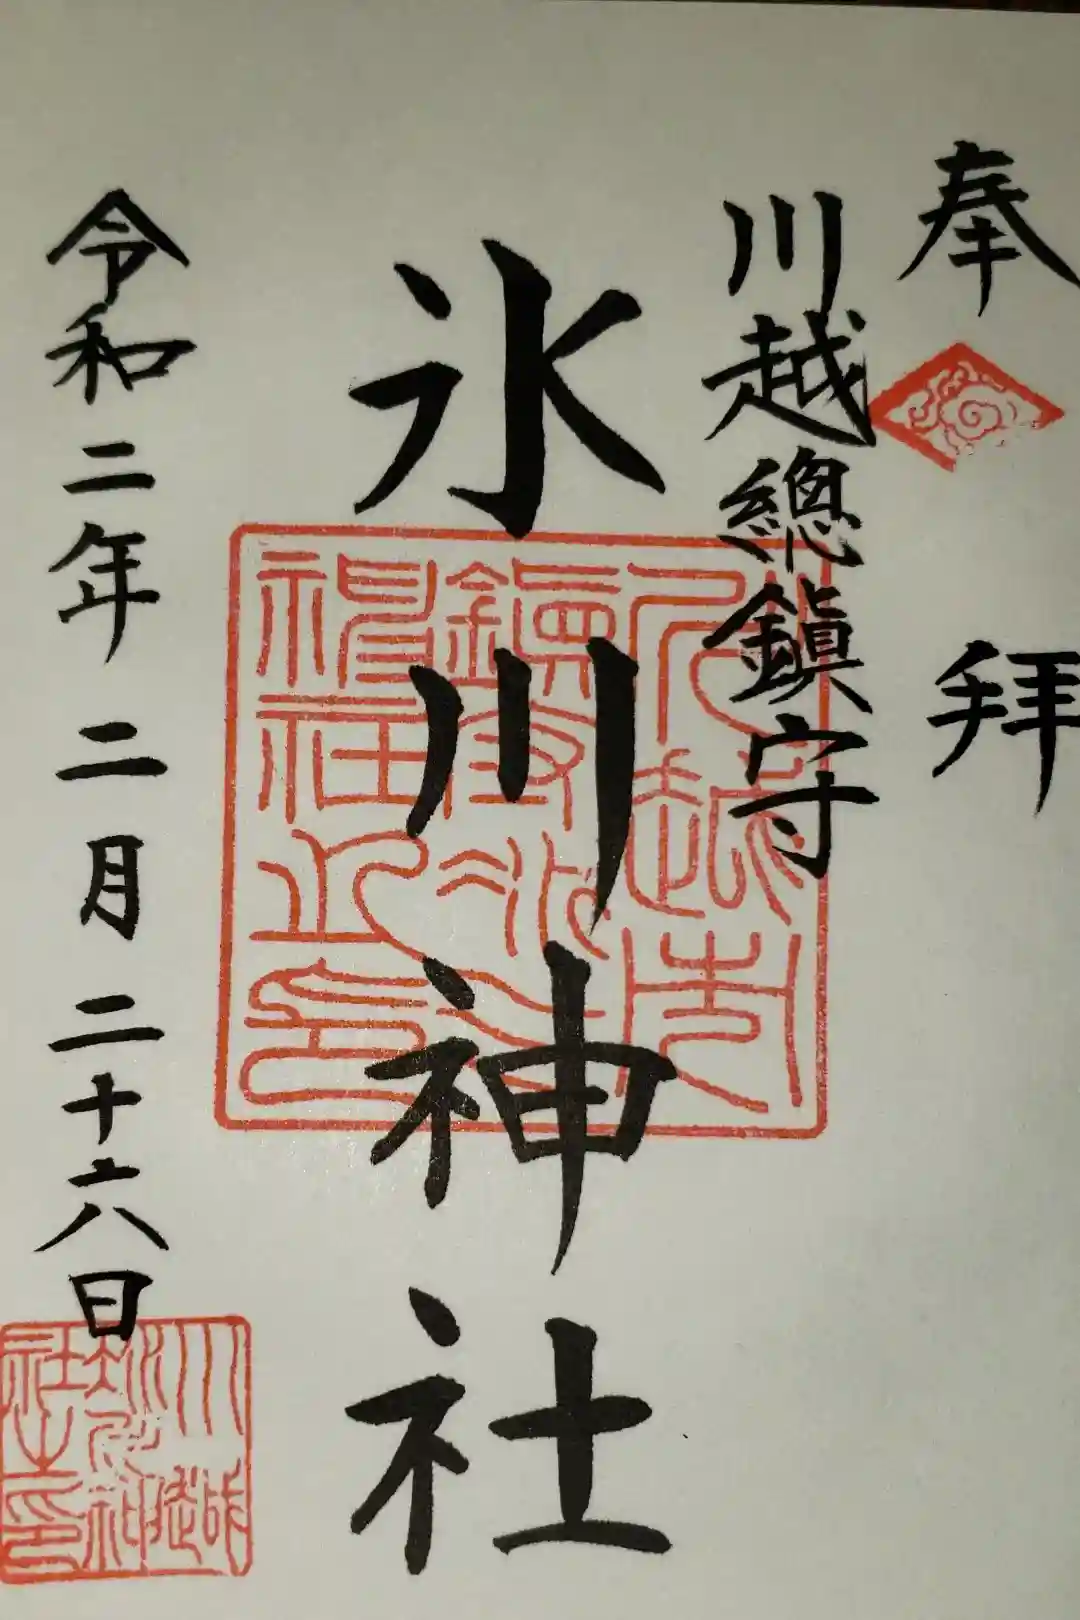 奉拜
川越總鎭守
氷川神社
令和二年二月二十六日